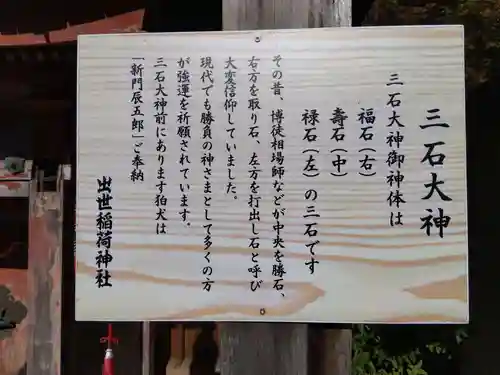 三石大神
三石大神御神体は
福石（右）
壽石（中）
禄石（左）の三石です
その昔、博徒相場師などが中央を勝石、
右方を取り石、左方を打出し石と呼び
大変信仰していました。
現代でも勝負の神さまとして多くの方
が強運を祈願されています。
三石大神前にあります狛犬は
「新門辰五郎」と奉納
出世稲荷神社